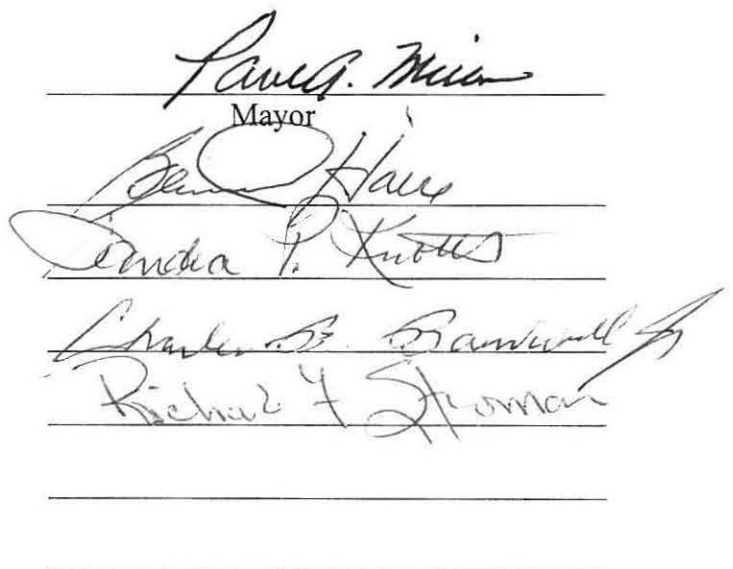 Paul A. Miller
Mayor
Haire
Sandra P. Knotts
Charles B. Barnwell Jr
Richard F Stroman